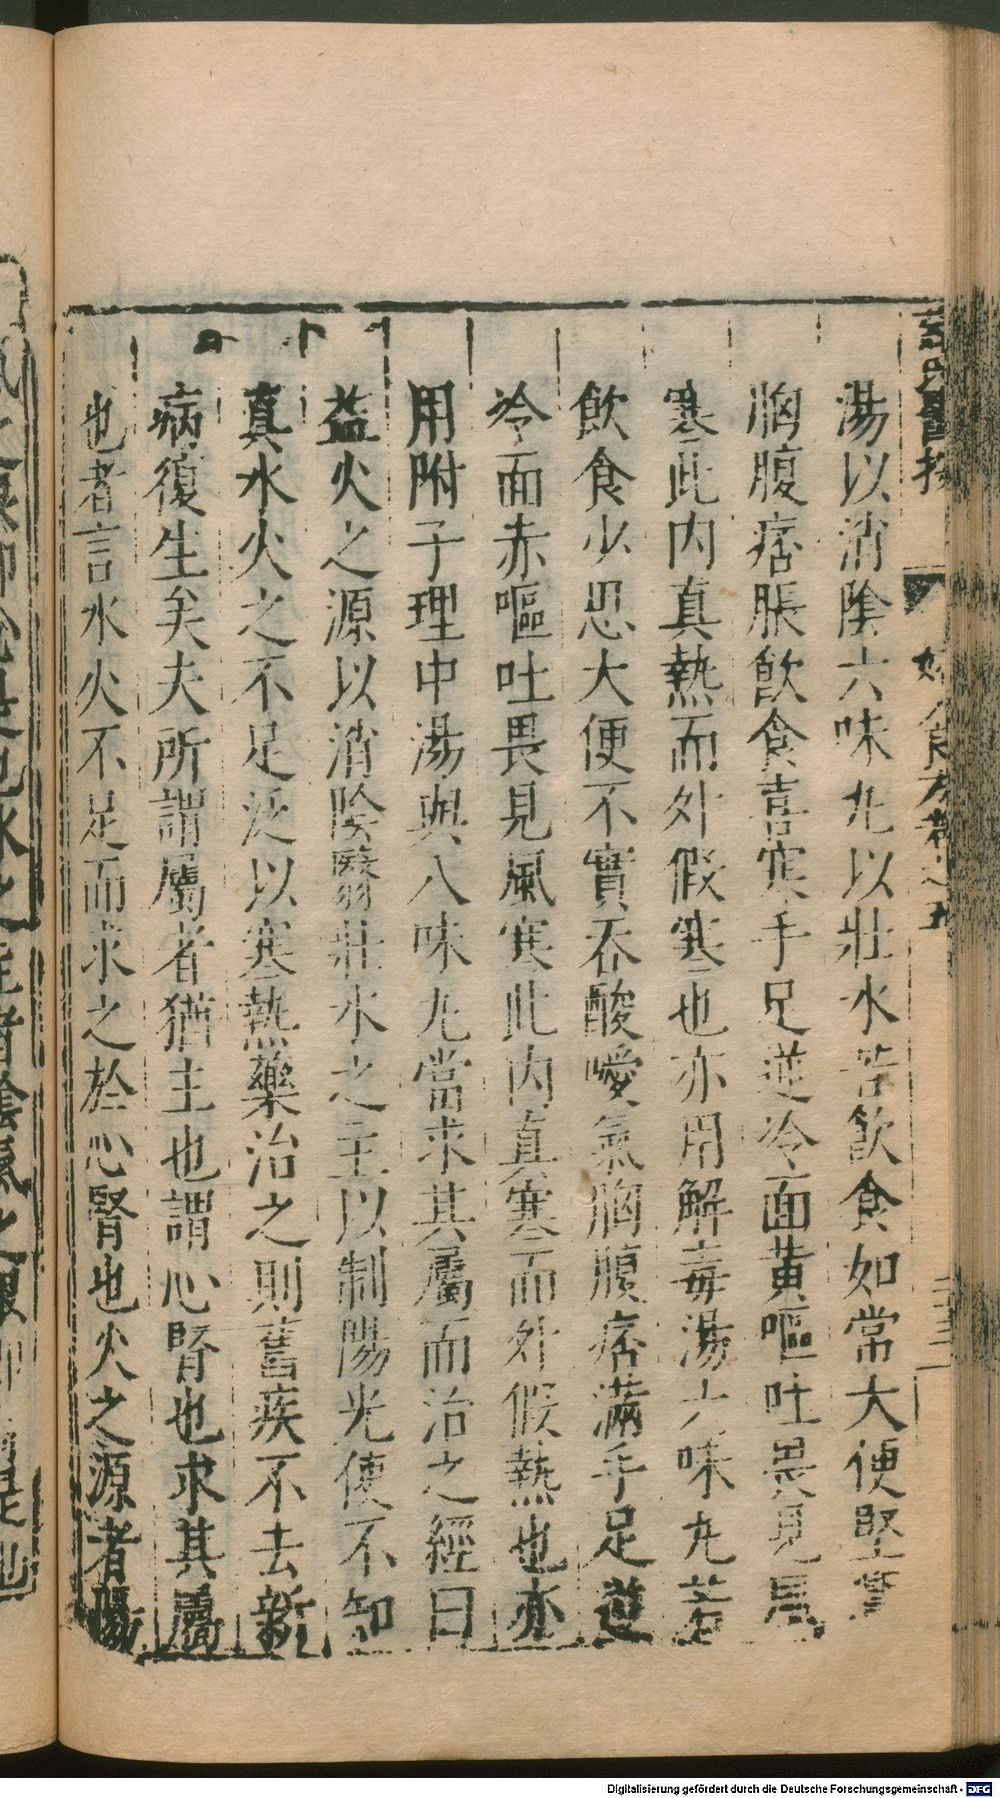 湯以消陰六味丸以壯水若飲食如常大便堅實
胸腹痞脹飲食喜寒手足逆冷面黃嘔吐畏見風
寒此内真熱而外假寒也亦用解毒湯六味丸若
飲食少思大便不實吞酸噯氣胸腹痞滿手足逆
冷面赤嘔吐畏見風寒此内真寒而外假熱也亦
用附子理中湯與八味丸當求其屬而治之經曰
益火之源以消陰翳壯水之主以制陽光使不知
真水火之不足泛以寒熱藥治之則舊疾不去新
病復生矣夫所謂屬者猶主也謂心腎也求其屬
也者言水火不足而求之於心腎也火之源者陽
Digitalisierung gefördert durch die Deutsche Forschungsgemeinschaft - DFG